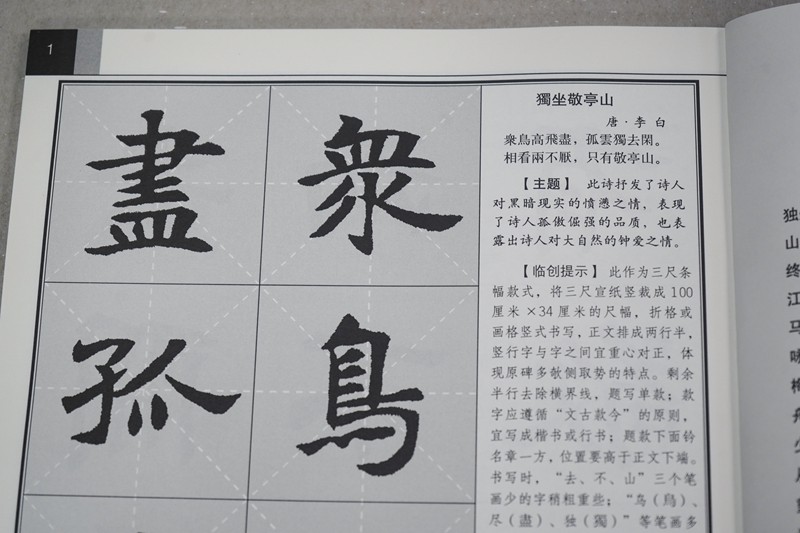 1
盡 衆
孤 鳥
獨坐敬亭山
唐·李白
衆鳥高飛盡，孤雲獨去閑。
相看兩不厭，只有敬亭山。
【主题】 此诗抒发了诗人
对黑暗现实的愤懑之情，表现
了诗人孤傲倔强的品质，也表
露出诗人对大自然的钟爱之情。
【临创提示】此作为三尺条
幅款式，将三尺宣纸竖裁成100
厘米×34厘米的尺幅，折格或
画格竖式书写，正文排成两行半，
竖行字与字之间宜重心对正，体
现原碑多欹侧取势的特点。剩余
半行去除横界线，题写单款；款
字应遵循“文古款今”的原则，
宜写成楷书或行书；题款下面钤
名章一方，位置要高于正文下端。
书写时，“去、不、山”三个笔
画少的字稍粗重些；“鸟（鳥）、
尽（盡）、独（獨）”等笔画多
独
山
终
江
马
咏
梅